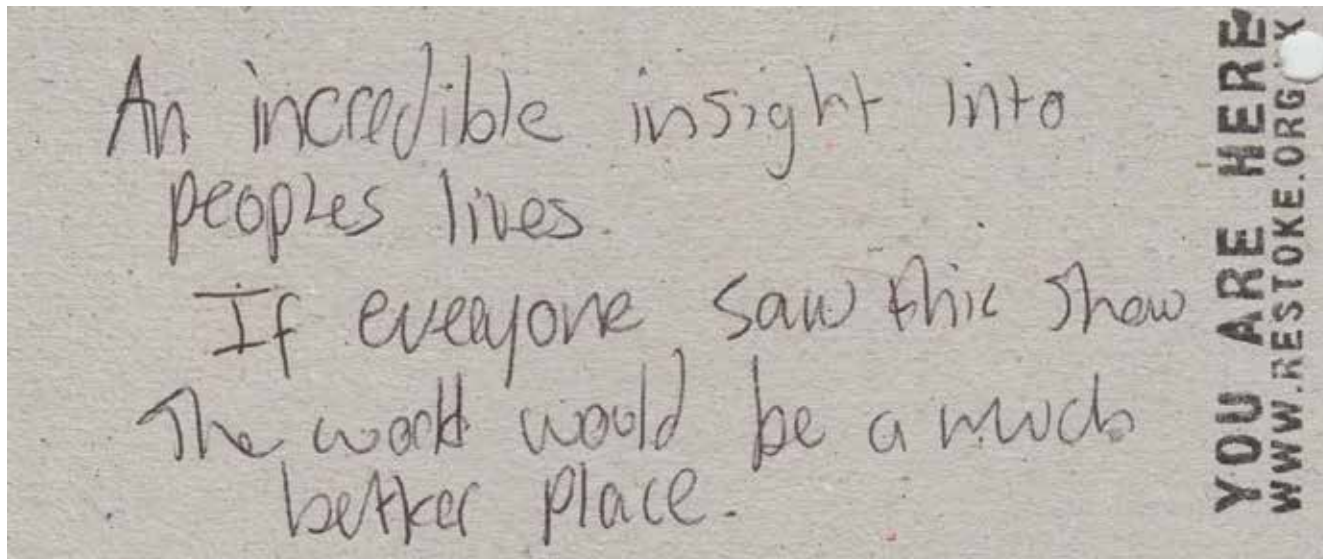 An incredible insight into
peoples lives.
If everyone saw this show
The world would be a much
better place.
YOU ARE HERE
WWW.RESTOKE.ORG